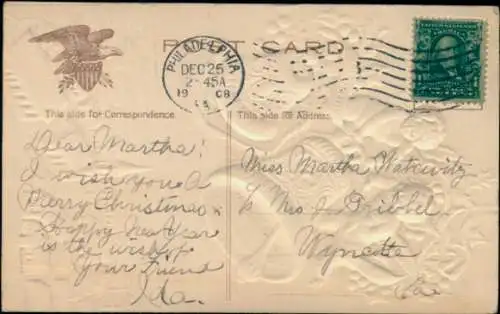 POST CARD
PHILADELPHIA
DEC 25
2-45A
1908
This side for Correspondence.
This side for Address.
Dear Martha!
I wish you a
Merry Christmas &
Happy New Year
is the wish of
your friend
Ida.
Miss Martha
c/o Mrs J. Dribbel
Wyncotte
Pa